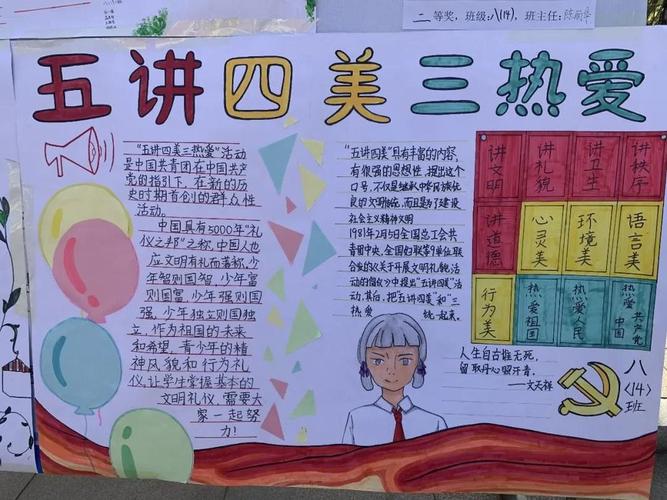 二等奖，班级：八(14)，班主任：陈丽华
五讲四美三热爱
"五讲四美三热爱"活动
是中国共青团在中国共产
党的指引下，在新的历
史时期首创的群众性
活动。
中国具有5000年"礼
仪之邦"之称，中国人也
应文明有礼而著称，少
年智则国智，少年富
则国富，少年强则国
强，少年独立则国独
立，作为祖国的未来
和希望，青少年的精
神风貌和行为礼
仪，让学生掌握基本的
文明礼仪，需要大
家一起努
力！
"五讲四美"具有丰富的内容，
有很强的思想性，提出这个
口号，不仅是继承中华民族优
良的文明传统，而且是为了建设
社会主义精神文明
1981年2月5日全国总工会共
青团中央，全国妇联等9单位联
合发的《关于开展文明礼貌活动
的倡议》中提出"五讲四美"活
动，其后，把五讲四美"和"三
热爱 统一起来。
讲文明
讲礼貌
讲卫生
讲秩序
讲道德
心灵美
环境美
语言美
行为美
热爱祖国
热爱人民
热爱中国共产党
人生自古谁无死，
留取丹心照汗青。
——文天祥
八
(14)
班